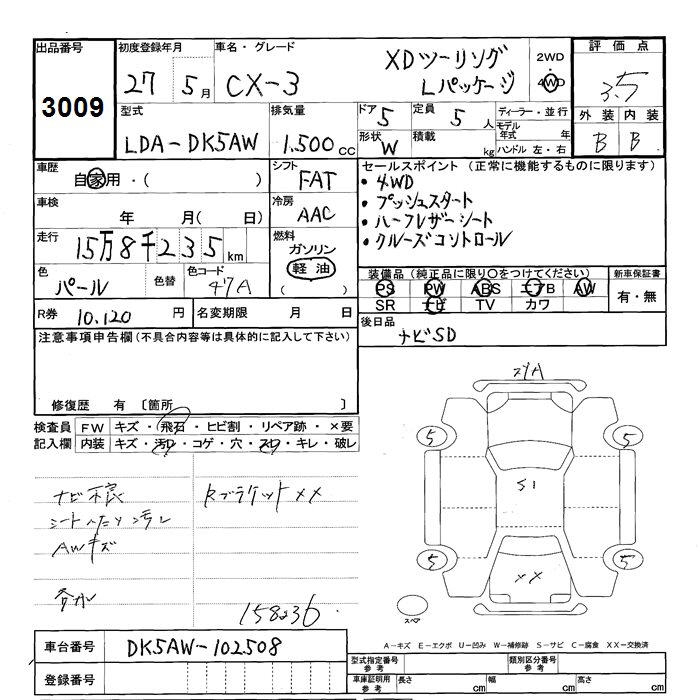 出品番号 初度登録年月 車名・グレード 2WD 評価点
3009 27 5月 CX-3 XDツーリング Lパッケージ 4WD 3.5
型式 排気量 ドア 定員 ディーラー・並行 外装 内装
LDA-DK5AW 1.500cc 5 5人 モデル年式 年 B B
形状 W 積載 kg ハンドル 左・右
車歴 自家用・( ) シフト FAT セールスポイント (正常に機能するものに限ります)
・4WD
車検 年 月( 日) 冷房 AAC ・プッシュスタート
・ハーフレザーシート
走行 15万8千235km 燃料 ガソリン 軽油 ( ) ・クルーズコントロール
色 パール 色替 色コード 47A 装備品 (純正品に限り○をつけてください) 新車保証書
PS PW ABS エアB AW 有・無
SR ナビ TV カワ
R券 10.120円 名変期限 月 日 後日品
ナビSD
注意事項申告欄 (不具合内容等は具体的に記入して下さい)
修復歴 有 〔箇所 〕
検査員記入欄 FW キズ・飛石・ヒビ割・リペア跡・×要
内装 キズ・汚れ・コゲ・穴・スレ・キレ・破レ
ナビ不良 Rブラケット××
シートへたり 汚レ
AWキズ
158236
5 5
S1
5 5
××
スペア
A-キズ E-エクボ U-凹み W-補修跡 S-サビ C-腐食 XX-交換済
車台番号 DK5AW-102508 型式指定番号 参考 類別区分番号 参考
登録番号 車庫証明用 参考 長さ cm 幅 cm 高さ cm